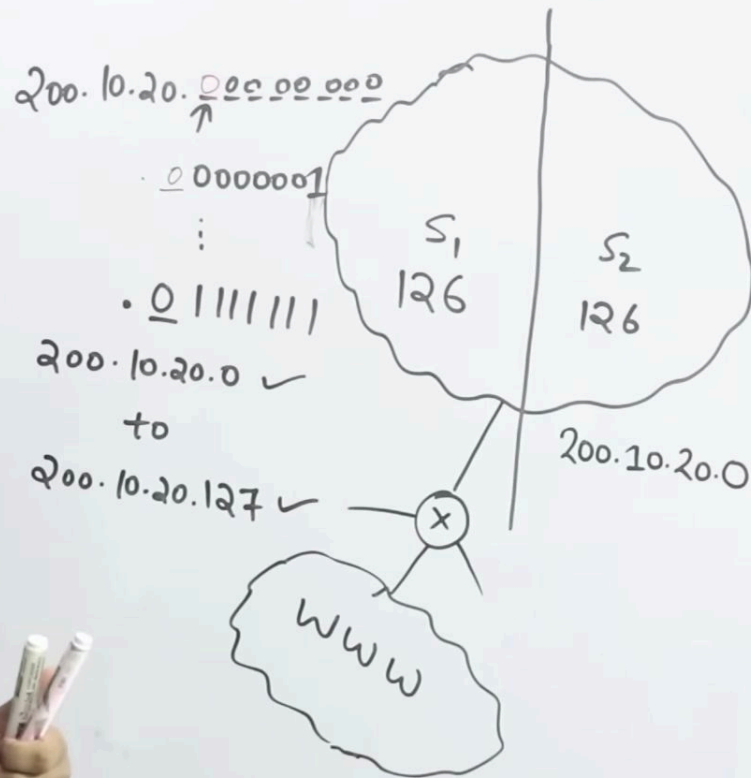 200.10.20.00000000
.00000001
⋮
.01111111
200.10.20.0 ✓
to
200.10.20.127 ✓
S₁
126
S₂
126
200.10.20.0
X
WWW